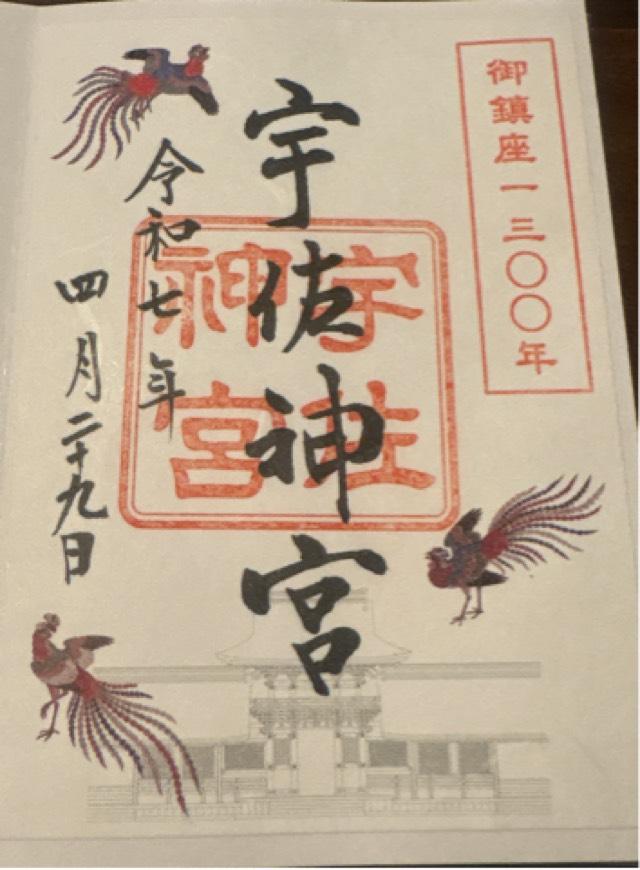 御鎮座一三〇〇年
宇佐神宮
宇佐
神宮
令和七年
四月二十九日